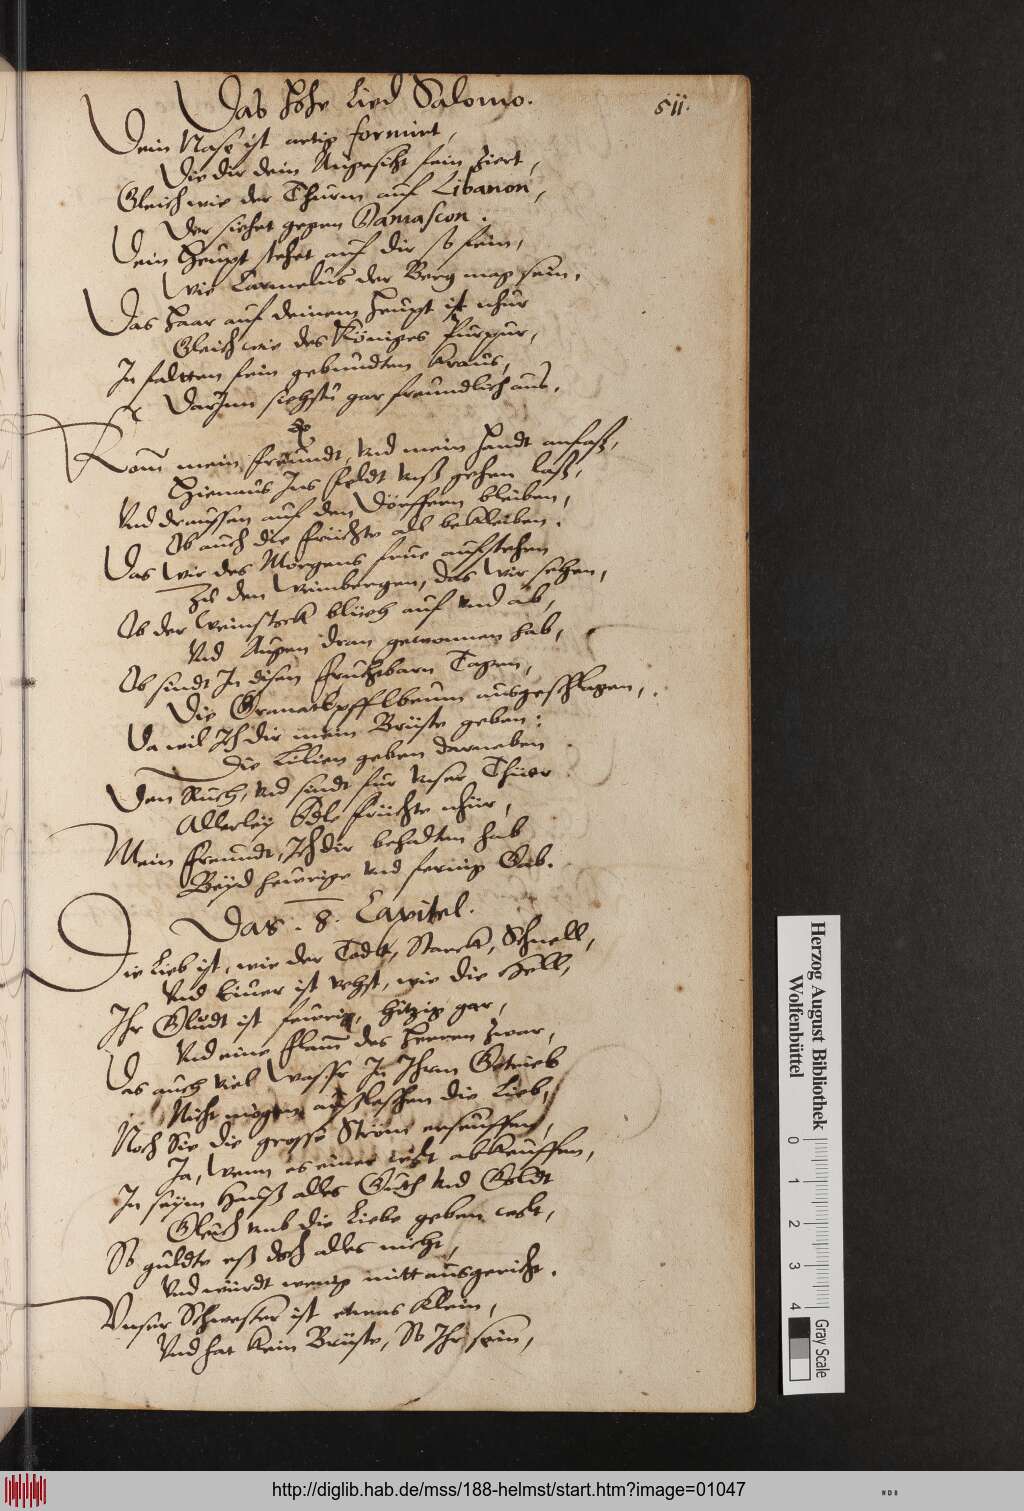 Das Hohe Lied Salomo.
511.
Dein Nase ist artig formirt,
Die dir dein Angesicht fein ziert,
Gleich wie der Thurm auf Libanon,
Der siehet gegen Damascon.
Dein Heupt stehet auf dir so fein,
Wie Carmelus der Berg mag sein,
Das Haar auf deinem Heupt ist nhur
Gleich wie des Königes Purpur,
In faltten fein gebundten kraus,
Darinn siehstu gar freundlich aus.
Kom mein freundt, Und mein Handt anfaß,
Hienaus Ins feldt Unß gehen laß,
Und draussen auf den Dörffern bleiben,
Ob auch die früchte all bekleiben.
Das Wir des Morgens frue aufstehen
Zu den Weinbergen, das Wir sehen,
Ob der Weinstock blüeh auf und ab,
Und Augen dran gewonnen hab,
Ob sindt In disen fruchtbarn Tagen,
Die Granatöpfflbeum ausgeschlagen,
Da wil Ich dir mein Brüste geben:
Die Lilien geben darneben
Den Ruch, Und sindt fur Unser Thüer
Allerley Edle früchte nhür,
Mein freundt, Ich dir behalten hab
Beyd heurige und fernig Gab.
Das. 8. Capitel.
Die Lieb ist, wie der Todt, Starck, Schnell,
Und Eiuer ist vehst, wie die Hell,
Ihr Gludt ist feurig, hitzig gar,
Und eine flam des Herren zwar,
Das auch viel Wasser In Ihrm Getrieb
Nicht mögen ausleschen die Lieb,
Noch Sie die grosse Ströme erseuffen,
Ja, Wenn es einer wolt abkeuffen,
In seym Hauß alles Guth Und Goldt
Gleich umb die Liebe geben wolt,
So güldte eß doch alles nicht,
Und würdt wenig mitt ausgericht.
Unser Schwester ist etwas klein,
Und hat kein Brüste, So Ihr sein,
Herzog August Bibliothek
Wolfenbüttel
0 1 2 3 4
Gray Scale
http://diglib.hab.de/mss/188-helmst/start.htm?image=01047